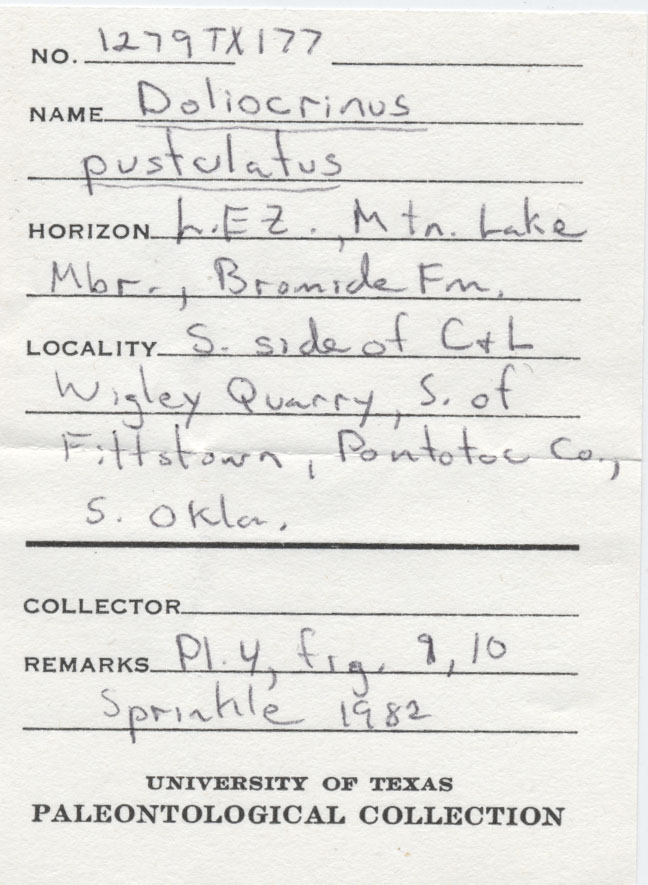 NO. 1279TX177
NAME Doliocrinus
pustulatus
HORIZON L.EZ., Mtn. Lake
Mbr., Bromide Fm.
LOCALITY S. side of C+L
Wigley Quarry, S. of
Fittstown, Pontotoc Co.,
S. Okla.
COLLECTOR
REMARKS Pl. 4, fig. 9, 10
Sprinkle 1982
UNIVERSITY OF TEXAS
PALEONTOLOGICAL COLLECTION